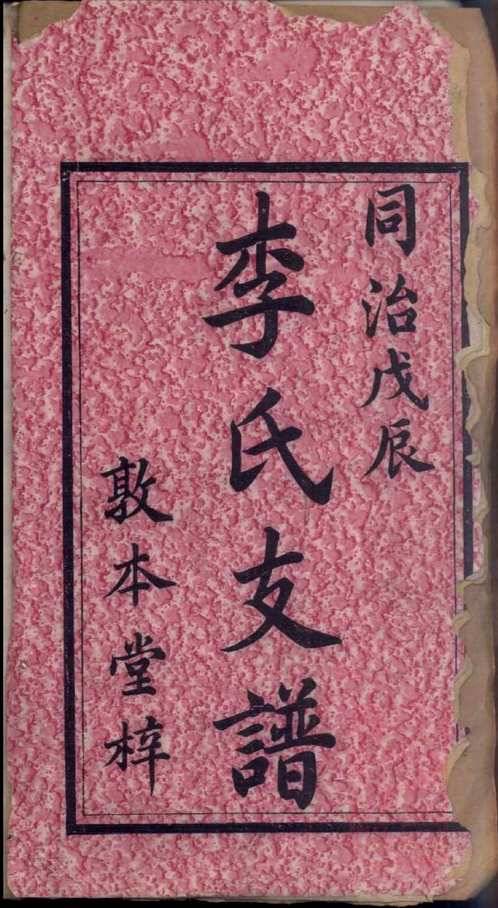 同治戊辰
李氏支譜
敦本堂梓